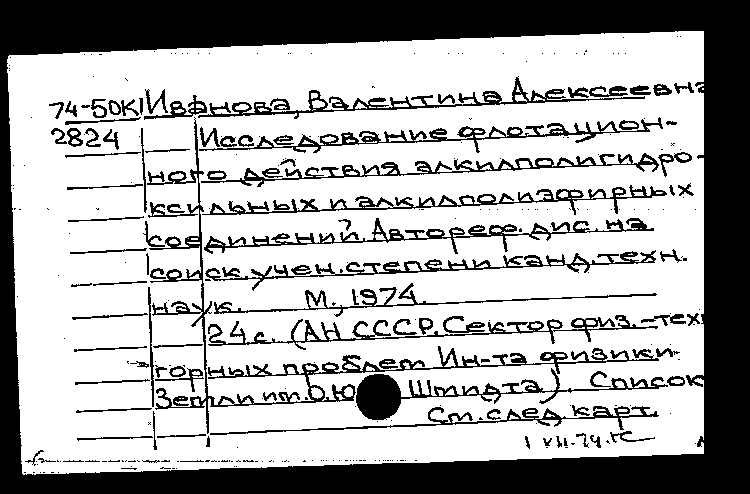 74-50К Иванова, Валентина Алексеевна
2824 Исследование флотацион-
ного действия алкилполигидро-
ксильных и алкилполиэфирных
соединений. Автореф. дис. на
соиск. учен. степени канд. техн.
наук. М., 1974.
24 с. (АН СССР. Сектор физ.-тех
горных проблем Ин-та физики
Земли им. О.Ю Шмидта). Список
См. след. карт.